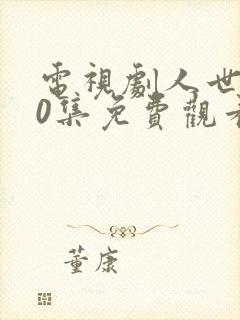 電視劇人世
0集免費觀看
董康